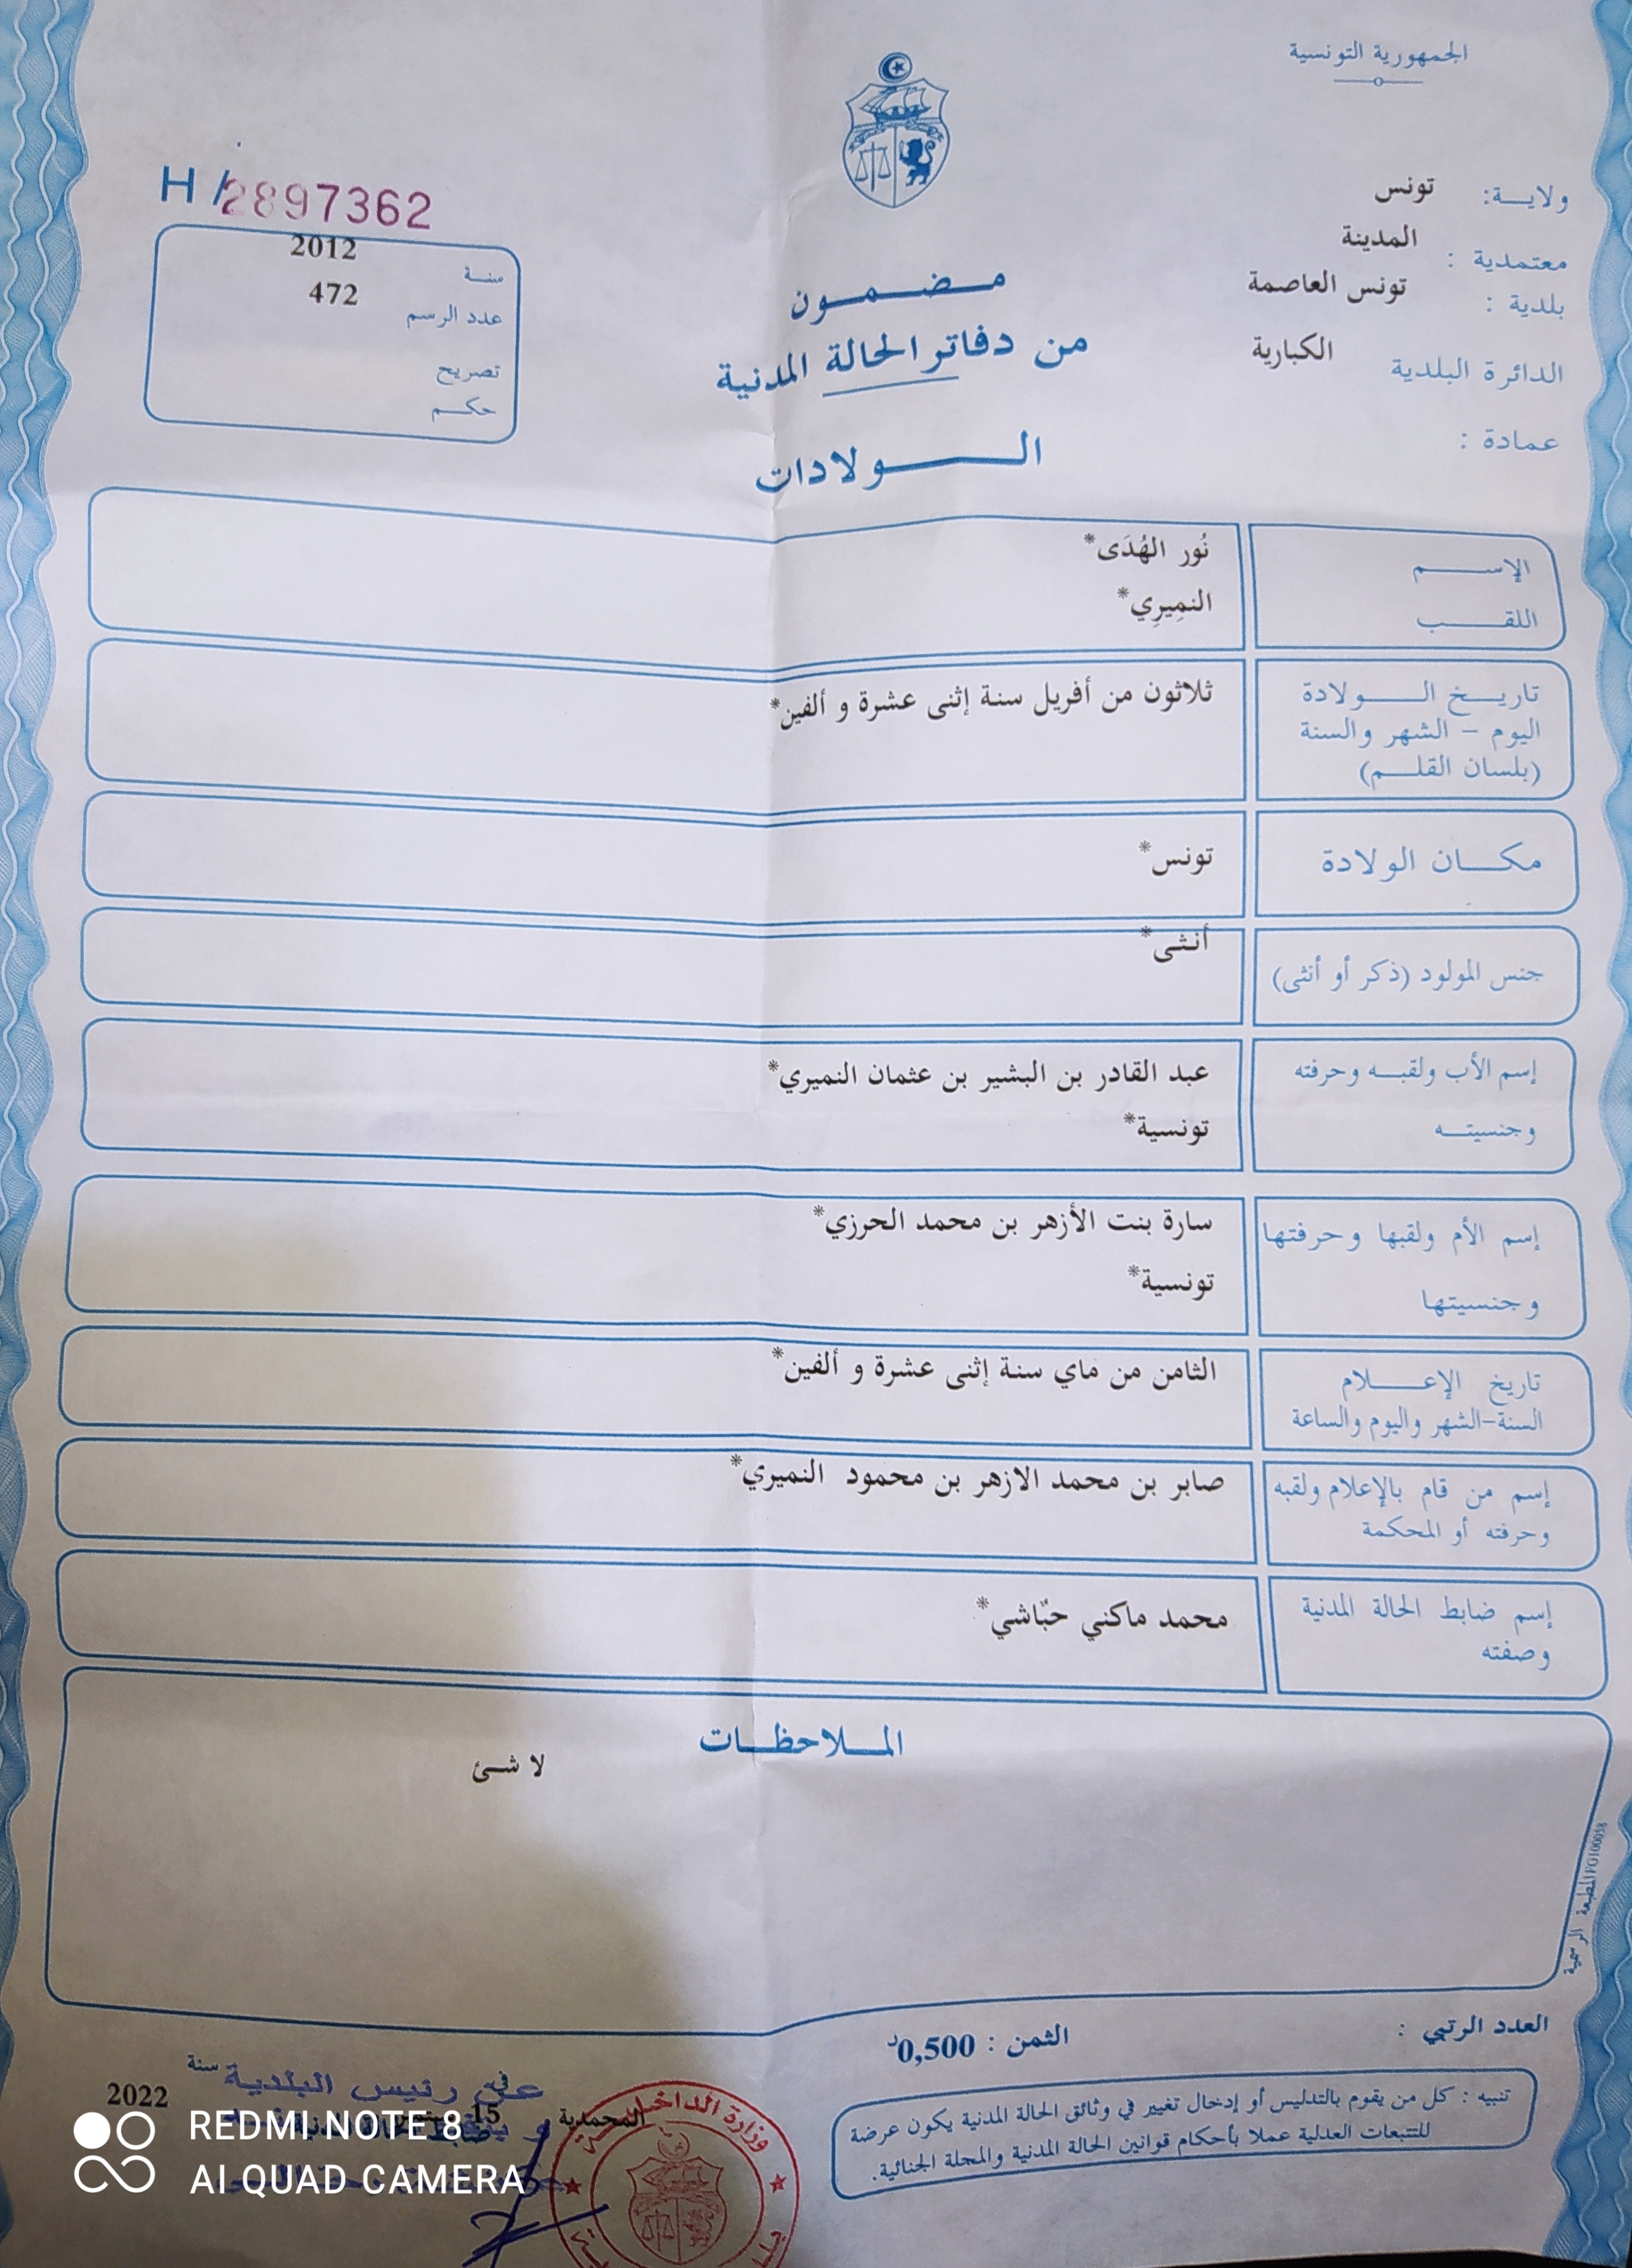 الجمهورية التونسية
ولايـــة: تونس
معتمدية : المدينة
بلدية : تونس العاصمة
الدائرة البلدية الكبارية
عمادة :
H/2897362
سنـة 2012
عدد الرسم 472
تصريح
حكــم
مـضـمـون
من دفاتر الحالة المدنية
الـولادات
الإســـم نُور الهُدَى*
اللقـــب النمِيرِي*
تاريـــخ الـــولادة ثلاثون من أفريل سنة إثنى عشرة و ألفين*
اليوم - الشهر والسنة
(بلسان القلــم)
مكـــان الولادة تونس*
جنس المولود (ذكر أو أنثى) أنـثـى*
إسم الأب ولقبــه وحرفته عبد القادر بن البشير بن عثمان النميري*
وجنسيتــه تونسية*
إسم الأم ولقبها وحرفتها سارة بنت الأزهر بن محمد الحرزي*
وجنسيتها تونسية*
تاريخ الإعـــلام الثامن من ماي سنة إثنى عشرة و ألفين*
السنة-الشهر واليوم والساعة
إسم من قام بالإعلام ولقبه صابر بن محمد الازهر بن محمود النميري*
وحرفته أو المحكمة
إسم ضابط الحالة المدنية محمد ماكني حبّاشي*
وصفته
المـلاحظـات
لا شـئ
المطبعة الرسمية FO100058
العدد الرتبي :
الثمن : 0,500د
تنبيه : كل من يقوم بالتدليس أو إدخال تغيير في وثائق الحالة المدنية يكون عرضة
للتتبعات العدلية عملا بأحكام قوانين الحالة المدنية والمجلة الجنائية.
المحمدية في 15 سنة 2022
عن رئيس البلدية
ضابط الحالة المدنية
وزارة الداخلية
REDMI NOTE 8
AI QUAD CAMERA